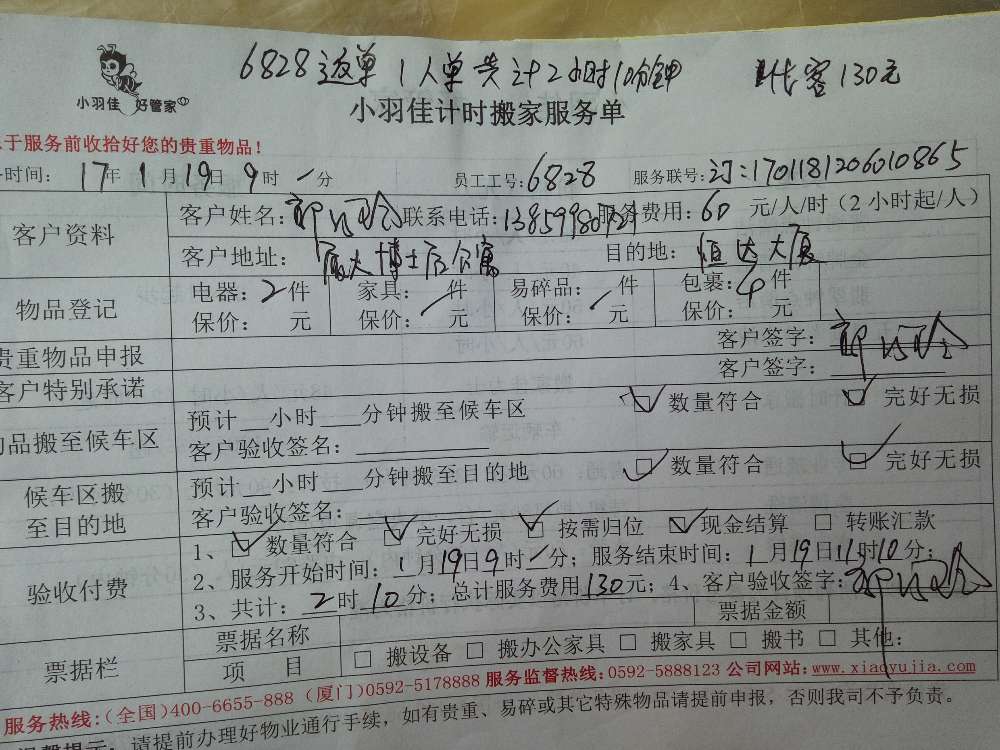 6828返单 1人单 共计2小时10分钟 代客130元
小羽佳 好管家
小羽佳计时搬家服务单
于服务前收拾好您的贵重物品!
时间: 17年1月19日9时/分 员工工号:6828 服务联号:订:1701181206010865
客户资料 客户姓名: 联系电话: 服务费用:60元/人/时(2小时起/人)
客户地址: 厦大博士后公寓 目的地: 恒达大厦
物品登记 电器:2件 家具:/件 易碎品:/件 包裹:4件
保价: 元 保价: 元 保价: 元 保价: 元
贵重物品申报 客户签字:
客户特别承诺 客户签字:
物品搬至候车区 预计__小时___分钟搬至候车区 ☑数量符合 ☑完好无损
客户验收签名:
候车区搬至目的地 预计__小时___分钟搬至目的地 ☑数量符合 ☑完好无损
客户验收签名:
验收付费 1、☑数量符合 ☑完好无损 ☑按需归位 ☑现金结算 □转账汇款
2、服务开始时间:1月19日9时/分;服务结束时间:1月19日11时10分;
3、共计:2时10分;总计服务费用130元;4、客户验收签字:
票据栏 票据名称 票据金额
项目 □搬设备 □搬办公家具 □搬家具 □搬书 □其他:
服务热线:(全国)400-6655-888 (厦门)0592-5178888 服务监督热线:0592-5888123 公司网站:www.xiaoyujia.com
温馨提示:请提前办理好物业通行手续,如有贵重、易碎或其它特殊物品请提前申报,否则我司不予负责。